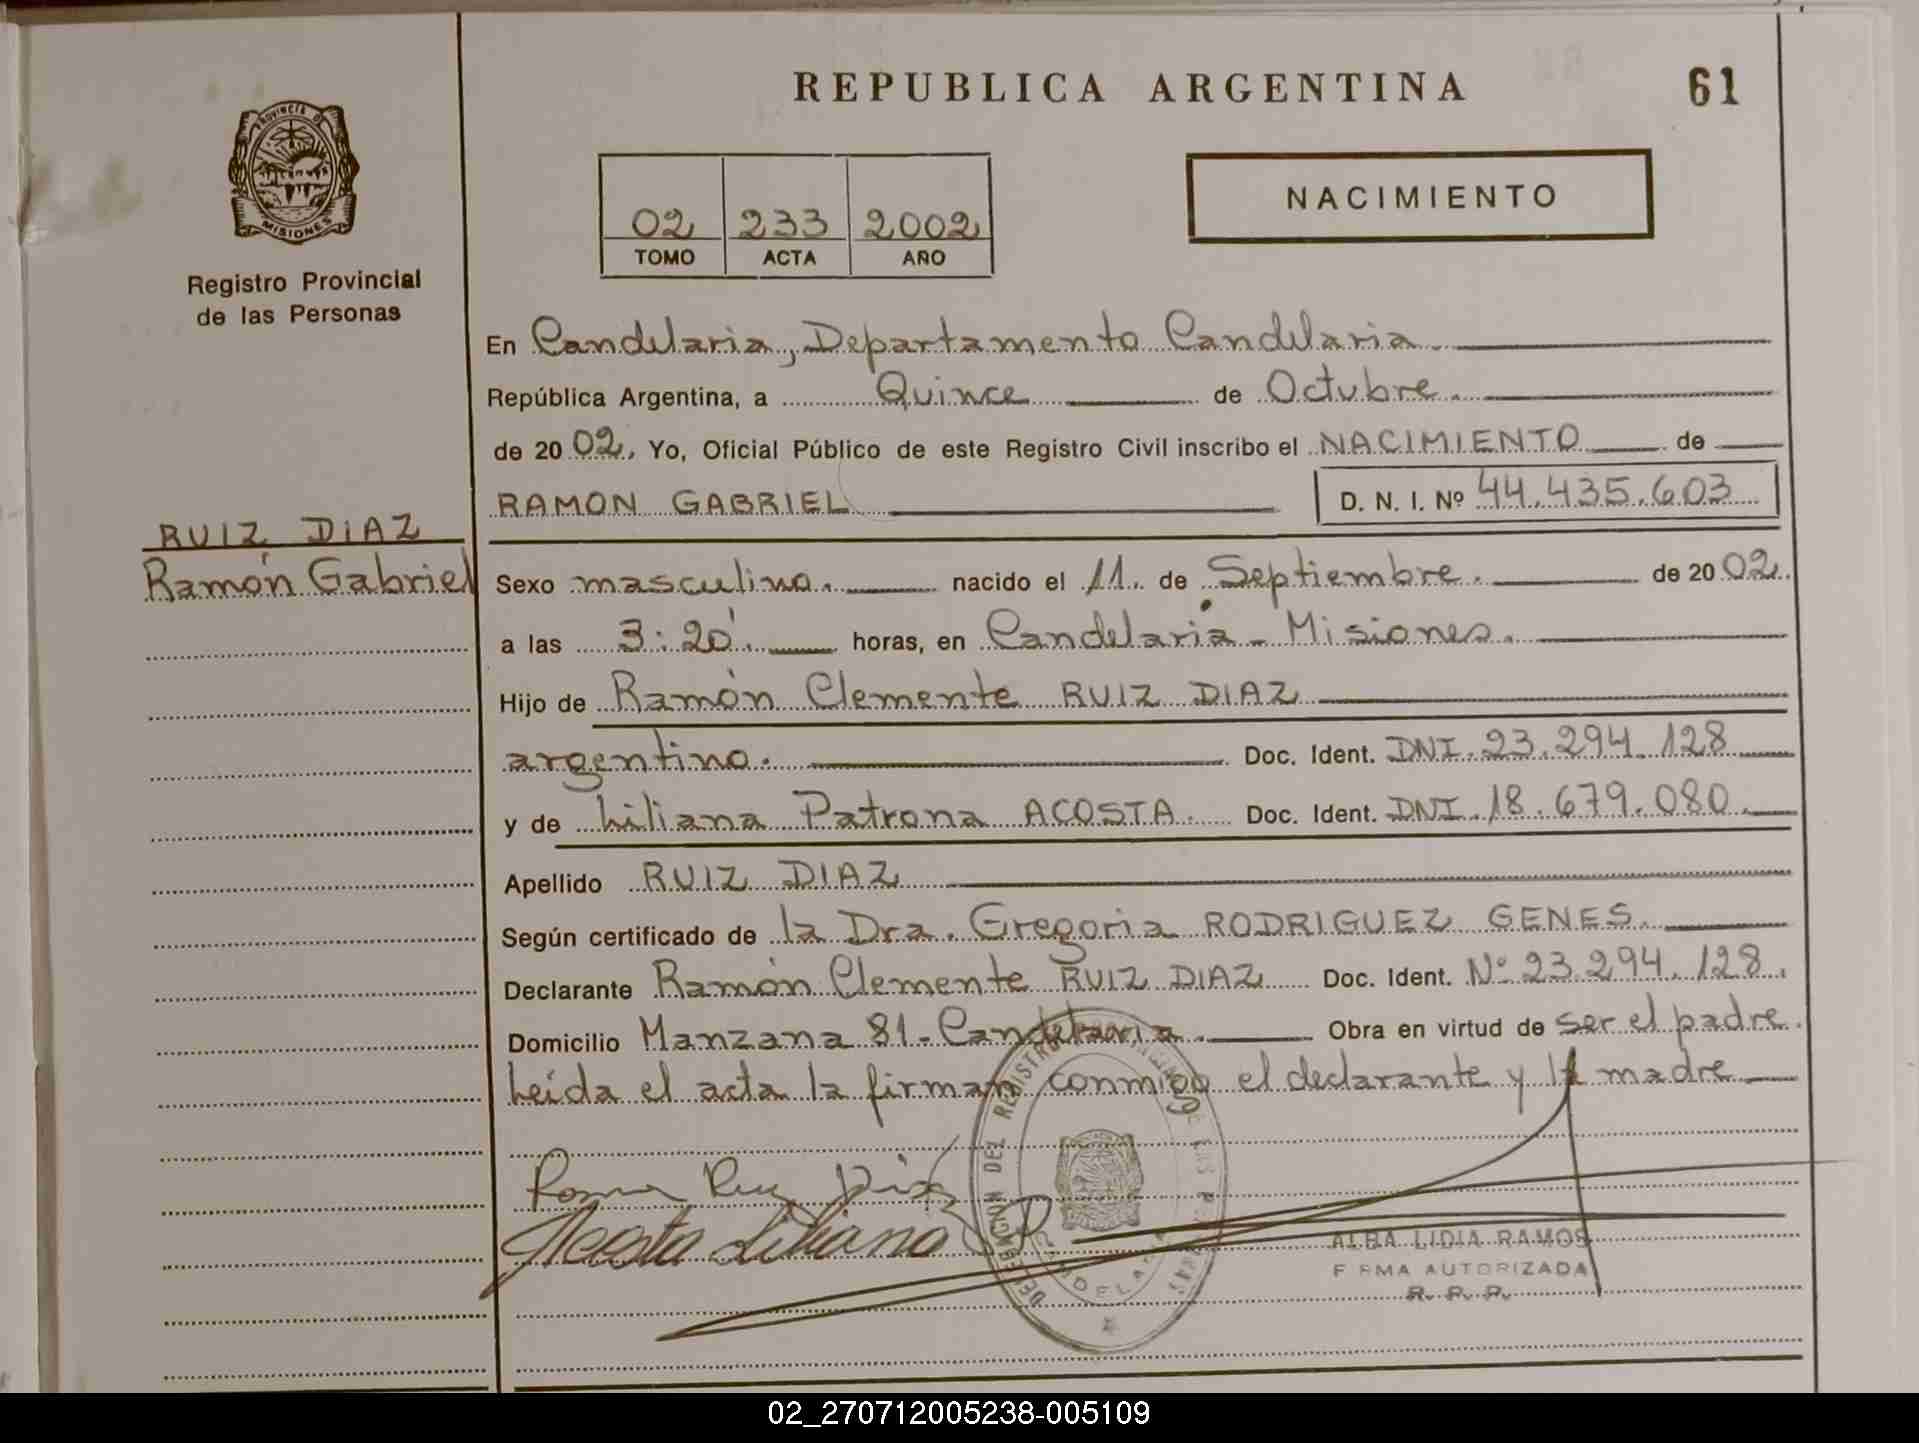 REPUBLICA ARGENTINA
61
PROVINCIA D
MISIONES
Registro Provincial
de las Personas
NACIMIENTO
02 233 2002
TOMO ACTA AÑO
En Candelaria, Departamento Candelaria.
República Argentina, a Quince de Octubre.
de 2002, Yo, Oficial Público de este Registro Civil inscribo el NACIMIENTO de
RAMON GABRIEL D. N. I. Nº 44.435.603
RUIZ DIAZ
Ramón Gabriel
Sexo masculino. nacido el 11. de Septiembre. de 2002.
a las 3:20'. horas, en Candelaria - Misiones.
Hijo de Ramón Clemente RUIZ DIAZ
argentino. Doc. Ident. DNI. 23.294.128
y de Liliana Patrona ACOSTA. Doc. Ident. DNI. 18.679.080.
Apellido RUIZ DIAZ
Según certificado de la Dra. Gregoria RODRIGUEZ GENES.
Declarante Ramón Clemente RUIZ DIAZ Doc. Ident. Nº 23.294.128.
Domicilio Manzana 81 - Candelaria. Obra en virtud de ser el padre.
Leída el acta la firman conmigo el declarante y la madre
Ruiz Diaz
Acosta Liliana P
DEL REGISTRO
CANDELARIA
ALBA LIDIA RAMOS
FIRMA AUTORIZADA
R. P. P.
02_270712005238-005109